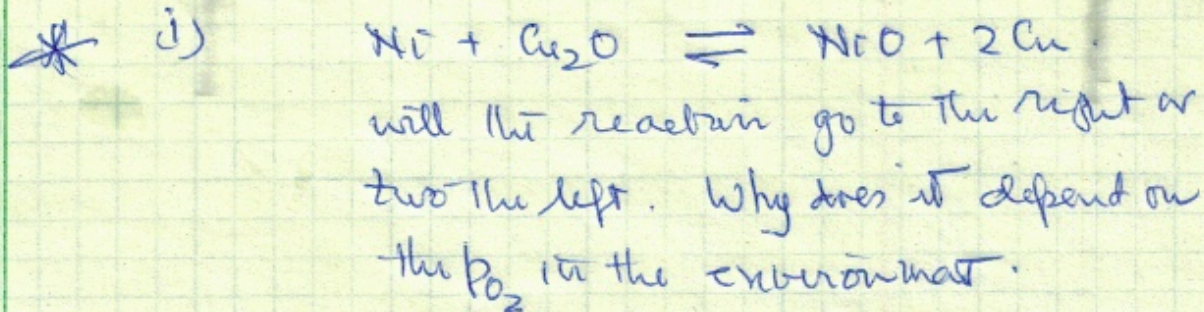 * i) Ni + Cu₂O ⇌ NiO + 2 Cu.
will the reaction go to the right or
two the left. Why does it depend on
the pO₂ in the environmat.